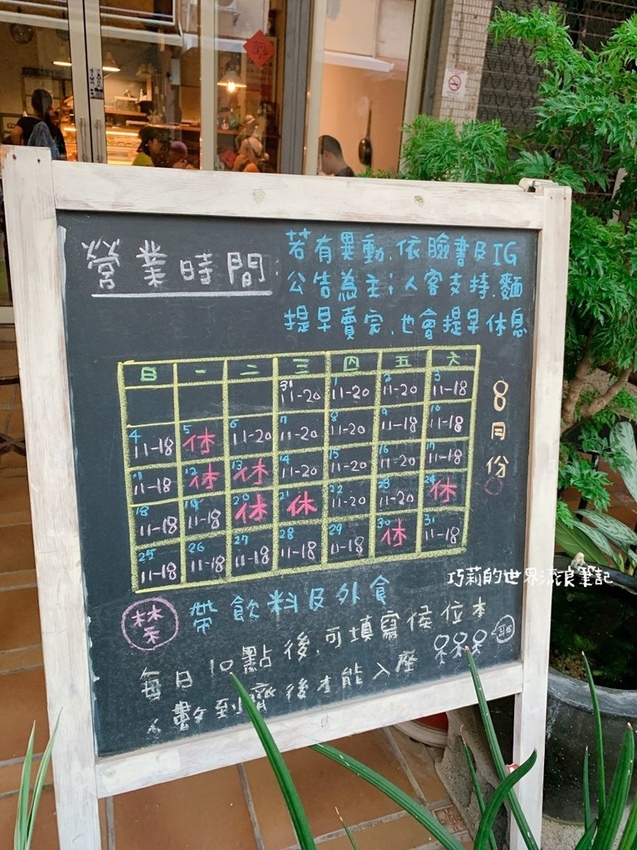 營業時間
若有異動,依臉書及IG
公告為主;人客支持,麵
提早賣完,也會提早休息
8月份
日 一 二 三 四 五 六
31 11-20 1 11-20 2 11-20 3 11-18
4 11-18 5 休 6 11-20 7 11-20 8 11-20 9 11-20 10 11-18
11 11-18 12 休 13 休 14 11-20 15 11-20 16 11-20 17 11-18
18 11-18 19 11-18 20 休 21 休 22 11-20 23 11-20 24 休
25 11-18 26 11-18 27 11-18 28 11-18 29 11-18 30 休 31 11-18
巧莉的世界流浪筆記
禁 帶飲料及外食
每日10點後,可填寫候位本
人數到齊後才能入座